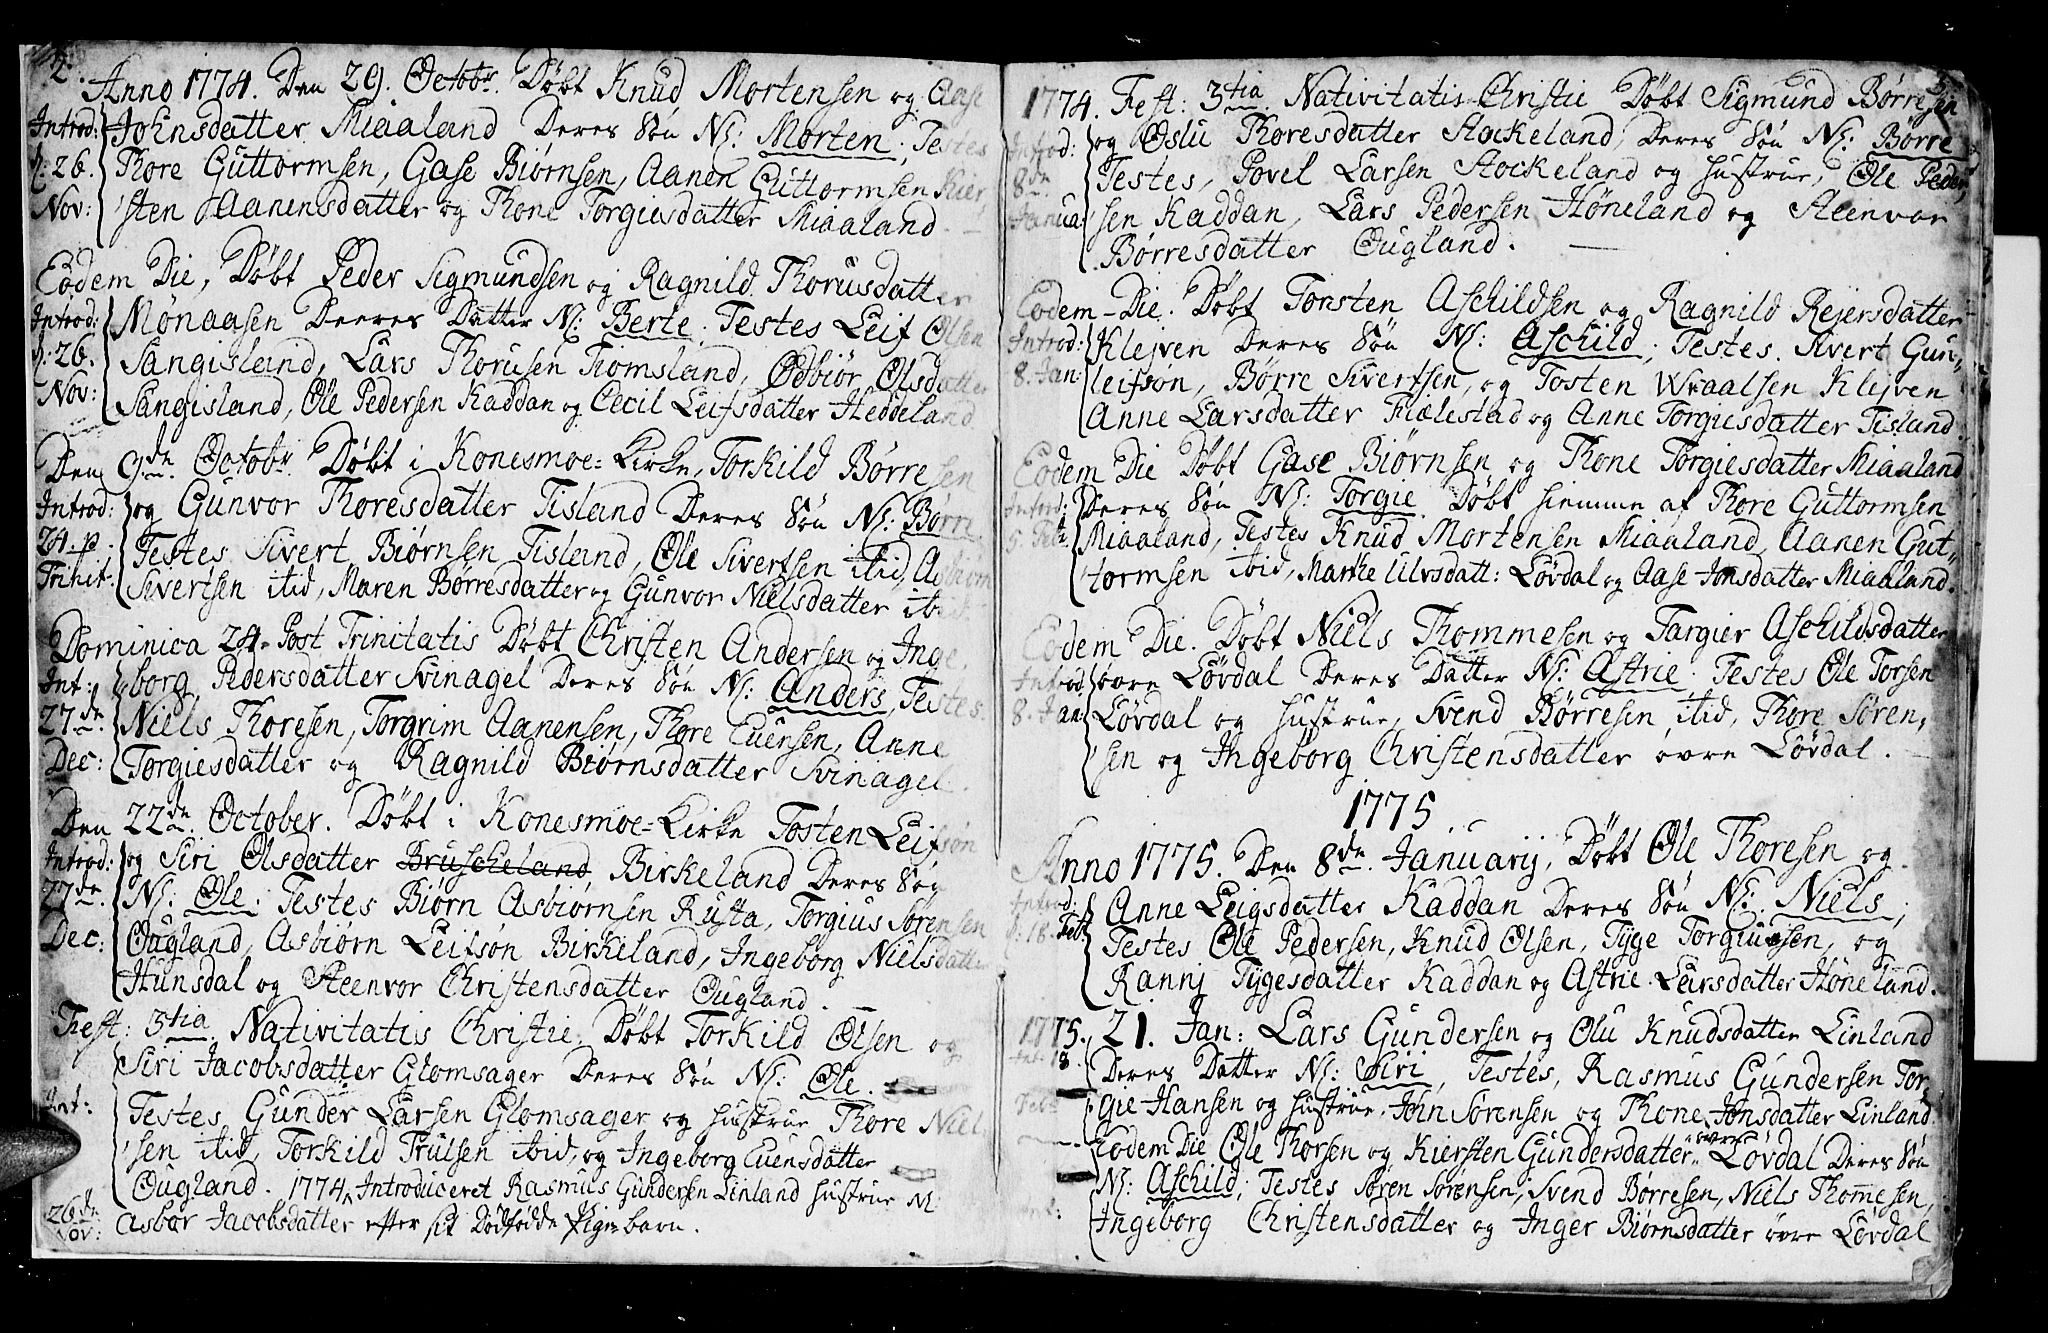 2.
Anno 1774. Den 29. Octobr. Döbt Knud Mortensen og Aase
Introd: Johnsdatter Miaaland Deres Sön N: Morten, Testes
d: 26. Thore Guttormsen, Gase Biørnsen, Aanen Guttormsen Kier
Nov: sten Aanensdatter og Thone Torgiesdatter Miaaland. —
Eodem Die, Döbt Peder Sigmundsen og Ragnild Thorusdatter
Introd: Mönaasen Deeres Datter N: Berte. Testes Leif Olsen
d: 26. Sangisland, Lars Thorusen Homsland, Ødbiör Olsdatter
Nov: Sangisland, Ole Pedersen Kaddan og Cecil Leifsdatter Heddeland
Den 9de Octobr Döbt i Konesmoe-Kirke, Torkild Börresen
Introd: og Gunvor Thoresdatter Tisland Deres Sön N: Börre
24. p. Testes Sivert Biörnsen Tisland, Ole Sivertsen itid,
Trinit: Sivertsen itid, Maren Börresdatter og Gunvor Nielsdatter
Dominica 24. Post Trinitatis Döbt Christen Andersen og Inge
Int: borg Pedersdatter Svinagel Deres Sön N: Anders, Testes
27de Niels Thoresen, Torgrim Aanensen, Thore Evensen, Anne
Dec: Torgiesdatter og Ragnild Biörnsdatter Svinagel.
Den 22de October. Döbt i Konesmoe-Kirke Tosten Leifsön
Introd: og Siri Olsdatter Bruskeland Birkeland Deres Sön
27de N: Ole. Testes Biörn Asbiörnsen Rusta, Torgius Sörensen
Dec: Ougland, Asbiörn Leifsön Birkeland, Ingeborg Nielsdatter
Hunsdal og Steenvor Christensdatter Ougland. —
Fest: 3tia Nativitatis Christi. Döbt Torkild Olsen og
Siri Jacobsdatter Glomsager Deres Sön N: Ole.
Int: Testes Gunder Larsen Glomsager og hustrue Thore Niel
sen itid, Torkild Trulsen ibid, og Ingeborg Evensdatter
Ougland. 1774, Introduceret Rasmus Gundersen Linland hustrue
26de Nov: Asbor Jacobsdatter efter sit Dödfödde Pigebarn.
1774. Fest: 3tia Nativitatis Christi Döbt Sigmund Börresen
Introd: og Oslu Thoresdatter Stockeland, Deres Sön N: Börre
8de Testes, Povel Larsen Stockeland og hustrue, Ole Peder
Janua: sen Kaddan, Lars Pedersen Höneland og Steenvor
Börresdatter Ougland. —
Eodem-Die. Döbt Torsten Aschildsen og Ragnild Rejersdatter
Introd: Klejven Deres Sön N: Aschild, Testes. Sivert Gun-
8. Jan: leifsön, Börre Sivertsen, og Tosten Wraalsen Klejven
Anne Larsdatter Fiælestad og Anne Torgiesdatter Tisland.
Eodem Die Döbt Gase Biörnsen og Thone Torgiesdatter Miaaland
Introd: Deres Sön N: Torgie Döbt hiemme af Thore Guttormsen
Miaaland, Testes Knud Mortensen Miaaland, Aanen Gut-
tormsen ibid, Marthe Ulvsdatt: Lövdal og Aase Jonsdatter Miaaland.
Eodem Die. Döbt Niels Thommesen og Targier Aschildsdatter
Introd övre Lövdal Deres Datter N: Astrie. Testes Ole Torsen
8. Jan: Lövdal og hustrue, Svend Börresen itid, Thore Sören-
sen og Ingeborg Christensdatter övre Lövdal.
1775
Anno 1775. Den 8de Januarij, Döbt Ole Thoresen og
Introd: Anne Leigsdatter Kaddan Deres Sön N: Niels,
d: 18. Feb: Testes Ole Pedersen, Knud Olsen, Tyge Torgiusen, og
Rannj Tygesdatter Kaddan og Astrie Larsdatter Höneland.
1775. 21. Jan: Lars Gundersen og Olu Knudsdatter Linland
Int. 18 Deres Datter N: Siri, Testes, Rasmus Gundersen Tor-
Feb: gie Hansen og hustrue, John Sörensen og Thone Jonsdatter Linland.
Eodem Die Ole Thorsen og Kiersten Gundersdatter övre Lövdal Deres Sön
N: Aschild, Testes Sören Sörensen, Svend Börresen, Niels Thommesen,
Ingeborg Christensdatter og Inger Biörnsdatter övre Lövdal